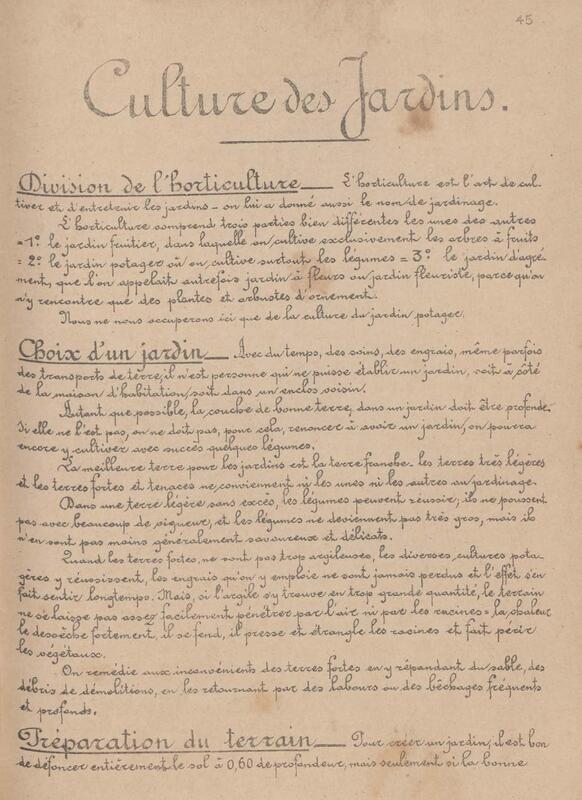 45
Culture des Jardins.
Division de l'horticulture — L'horticulture est l'art de cul-
tiver et d'entretenir les jardins – on lui a donné aussi le nom de jardinage.
L'horticulture comprend trois parties bien différentes les unes des autres
= 1° le jardin fruitier, dans laquelle on cultive exclusivement les arbres à fruits
= 2° le jardin potager où on cultive surtout les légumes = 3° le jardin d'agré-
ment, que l'on appelait autrefois jardin à fleurs ou jardin fleuriste, parce qu'on
n'y rencontre que des plantes et arbustes d'ornement.
Nous ne nous occuperons ici que de la culture du jardin potager.
Choix d'un jardin — Avec du temps, des soins, des engrais, même parfois
des transports de terre, il n'est personne qui ne puisse établir un jardin, soit à côté
de la maison d'habitation, soit dans un enclos voisin.
Autant que possible, la couche de bonne terre, dans un jardin doit être profonde.
Si elle ne l'est pas, on ne doit pas, pour cela, renoncer à avoir un jardin, on pourra
encore y cultiver avec succès quelques légumes.
La meilleure terre pour les jardins est la terre franche. les terres très légères
et les terres fortes et tenaces ne conviennent ni les unes ni les autres au jardinage.
Dans une terre légère sans excès, les légumes peuvent réussir; ils ne poussent
pas avec beaucoup de vigueur, et les légumes ne deviennent pas très gros, mais ils
n'en sont pas moins généralement savoureux et délicats.
Quand les terres fortes, ne sont pas trop argileuses, les diverses cultures pota-
gères y réussissent, les engrais qu'on y emploie ne sont jamais perdus et l'effet s'en
fait sentir longtemps. Mais, si l'argile s'y trouve en trop grande quantité, le terrain
ne se laisse pas assez facilement pénétrer par l'air ni par les racines = la chaleur
le dessèche fortement, il se fend, il presse et étrangle les racines et fait périr
les végétaux.
On remédie aux inconvénients des terres fortes en y répandant du sable, des
débris de démolitions, en les retournant par des labours ou des bêchages fréquents
et profonds.
Préparation du terrain — Pour créer un jardin, il est bon
de défoncer entièrement le sol à 0,60 de profondeur, mais seulement si la bonne